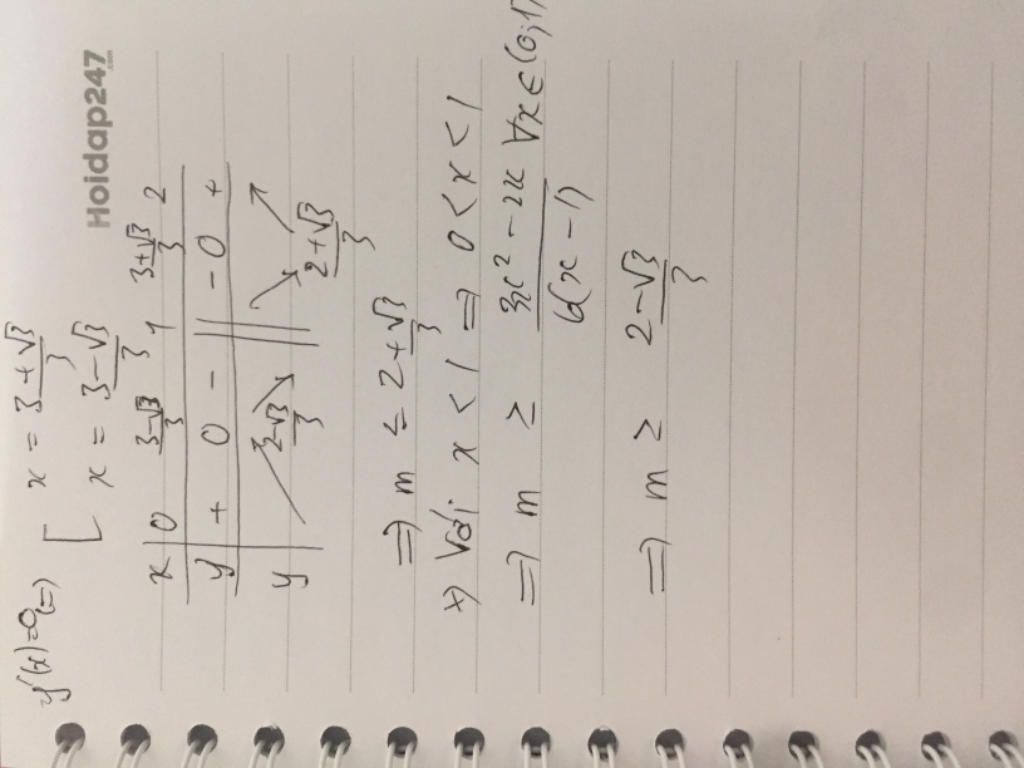 Hoidap247
.com
y'(x)=0 (=) [ x = 3+√3/3
x = 3-√3/3
x 0 3-√3/3 1 3+√3/3 2
y' + 0 - || - 0 +
y 2-√3/3 2+√3/3
=> m ≤ 2+√3/3
+) Với x < 1 => 0 < x < 1
=> m ≥ 3x² - 2x / 6(x - 1) ∀x ∈ (0;1)
=> m ≥ 2-√3/3